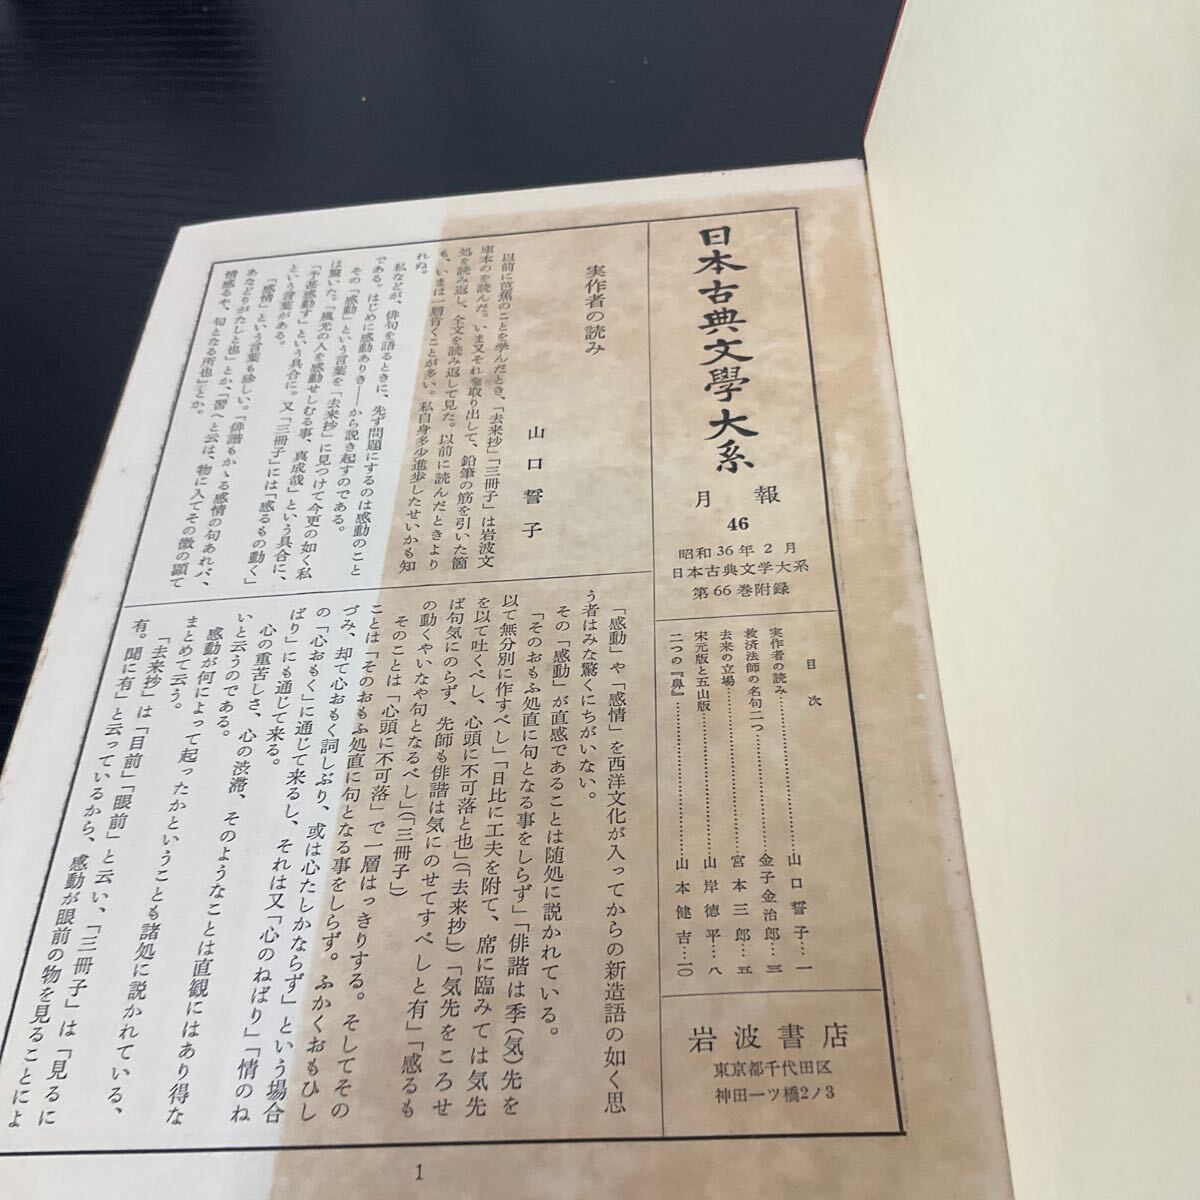 日本古典文學大系
月報
46
昭和36年2月
日本古典文学大系
第66巻附録
目次
実作者の読み……………山口誓子…一
救済法師の名句二つ……金子金治郎…三
去来の立場……………宮本三郎…五
宋元版と五山版……………山岸徳平…八
二つの『鼻』……………山本健吉…一〇
岩波書店
東京都千代田区
神田一ツ橋2ノ3
実作者の読み
山口誓子
以前に芭蕉のことを学んだとき、「去来抄」「三冊子」は岩波文
庫本のを読んだ。いま又それを取り出して、鉛筆の筋を引いた箇
処を読み返し、全文を読み返して見た。以前に読んだときより
も、いまは一層肯くことが多い。私自身多少進歩したせいかも知
れぬ。
私などが、俳句を語るときに、先ず問題にするのは感動のこと
である。はじめに感動ありき――から説き起すのである。
その「感動」という言葉を「去来抄」に見つけて今更の如く私
は驚いた。「風光の人を感動せしむる事、真成哉」という具合に、
「予甚感動す」という具合に。又「三冊子」には「感るもの動く」
という言葉がある。
「感情」という言葉も珍しい。「俳諧もかゝる感情の句あれバ、
あなどりがたしと也」とか、「習へと云は、物に入てその微の顕て
情感るや、句となる所也」とか。
「感動」や「感情」を西洋文化が入ってからの新造語の如く思
う者はみな驚くにちがいない。
その「感動」が直感であることは随処に説かれている。
「そのおもふ処直に句となる事をしらず」「俳諧は季(気)先を
以て無分別に作すべし」「日比に工夫を附て、席に臨みては気先
を以て吐くべし、心頭に不可落と也」(「去来抄」)「気先をころせ
ば句気にのらず、先師も俳諧は気にのせてすべしと有」「感るも
の動くやいなや句となるべし」(「三冊子」)
そのことは「心頭に不可落」で一層はっきりする。そしてその
ことは「そのおもふ処直に句となる事をしらず。ふかくおもひし
づみ、却て心おもく詞しぶり、或は心たしかならず」という場合
の「心おもく」に通じて来るし、それは又「心のねばり」「情のね
ばり」にも通じて来る。
心の重苦しさ、心の渋滞、そのようなことは直観にはあり得な
いと云うのである。
感動が何によって起ったかということも諸処に説かれている、
まとめて云う。
「去来抄」は「目前」「眼前」と云い、「三冊子」は「見るに
有。聞に有」と云っているから、感動が眼前の物を見ることによ
1